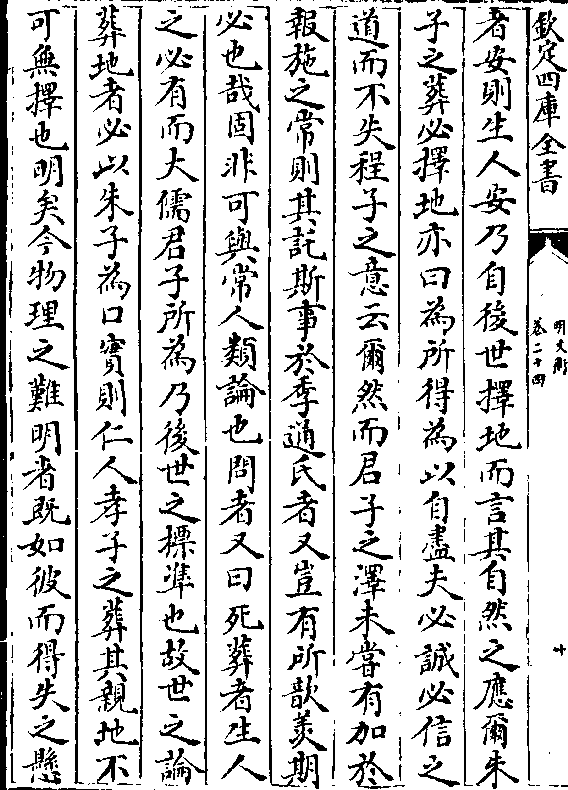 欽定四庫全書
明文衡
卷二十四
十
者安則生人安乃自後世擇地而言其自然之應爾朱
子之葬必擇地亦曰為所得為以自盡夫必誠必信之
道而不失程子之意云爾然而君子之澤未嘗有加於
報施之常則其託斯事於季通氏者又豈有所歆羨期
必也哉固非可與常人類論也問者又曰死葬者生人
之必有而大儒君子所為乃後世之標準也故世之論
葬地者必以朱子為口實則仁人孝子之葬其親地不
可無擇也明矣今物理之難明者既如彼而得失之懸